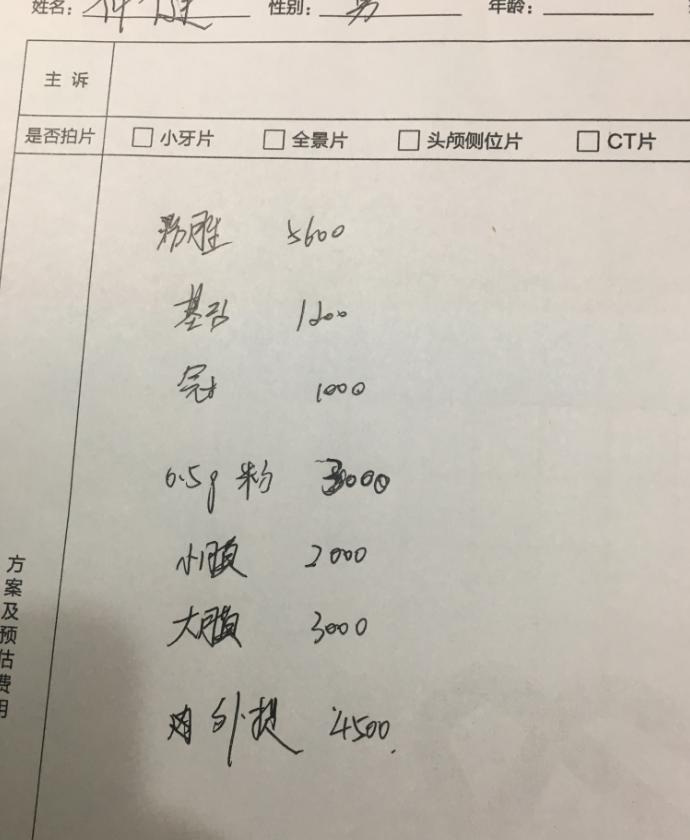 姓名： 性别： 男 年龄：
主诉
是否拍片 □ 小牙片 □ 全景片 □ 头颅侧位片 □ CT片
5600
基台 1200
冠 1000
0.5g 粉 3000
小膜 2000
大膜 3000
外提 4500
方案及预估费用